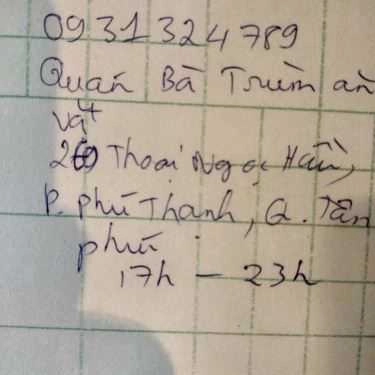 0931324789
Quán Bà Trùm ăn
vặt
Thoại Ngọc Hầu,
P. Phú Thạnh, Q. Tân
phú.
17h - 23h